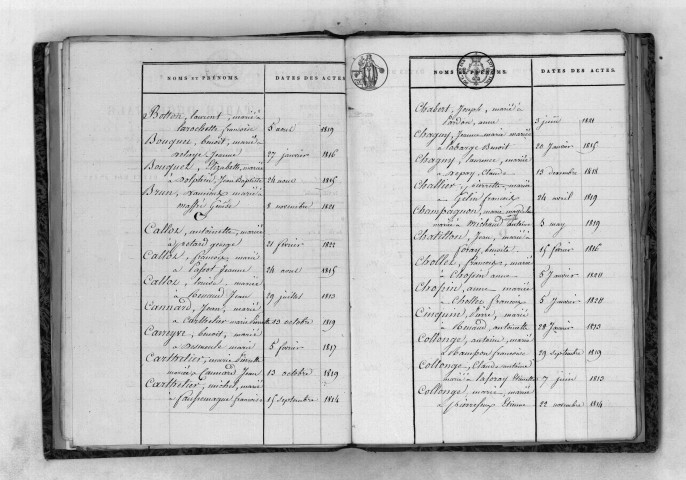 NOMS ET PRÉNOMS. DATES DES ACTES.
Botton, laurent, marié à
larochette francoise 3 avril 1819
Bouquet, benoit, marié
à Jeanne 27 janvier 1816
Bouquet, Elizabeth, mariée
à Dolphin, Jean Baptiste 24 aout 1815
Brun, marié à
8 novembre 1821
C
Calloz, antoinette, mariée
à george 21 février 1822
Calloz, francois, marié
à Jeanne 24 aout 1815
Calloz, louise, mariée
à Renaud Jean 29 juillet 1813
Cannard, Jean, marié
à Carthelier marie Pierrette 13 octobre 1819
benoit, marié
à marie 5 février 1817
Carthelier, marie Pierrette
mariée à Cannard Jean 13 octobre 1819
Carthelier, michel, marié
à francoise 15 septembre 1814
NOMS ET PRÉNOMS. DATES DES ACTES.
Chabert, Joseph, marié à
anne 3 juin 1811
Chagny, Jeanne marie mariée
à labarge Benoit 20 Janvier 1815
Chagny, laurence, mariée
à Claude 13 decembre 1818
Challier, pierrette, mariée
à francois 24 avril 1819
Champagnon, marie magdelaine
mariée à michaud antoine 5 may 1819
Chatillon, Jean, marié
à benoite 15 février 1816
Chollet, francois, marié
à Chopin anne 5 Janvier 1820
Chopin, anne, mariée
à Chollet francois 5 Janvier 1820
Cinquin, Pierre, marié
à Renaud, antoinette 28 Janvier 1813
Collonge, antoine, marié
à Champon francoise 29 septembre 1819
Collonge, Claude antoine
marié à laforay Pierrette 7 juin 1813
Collonge, marie, mariée
à Etienne 22 novembre 1814